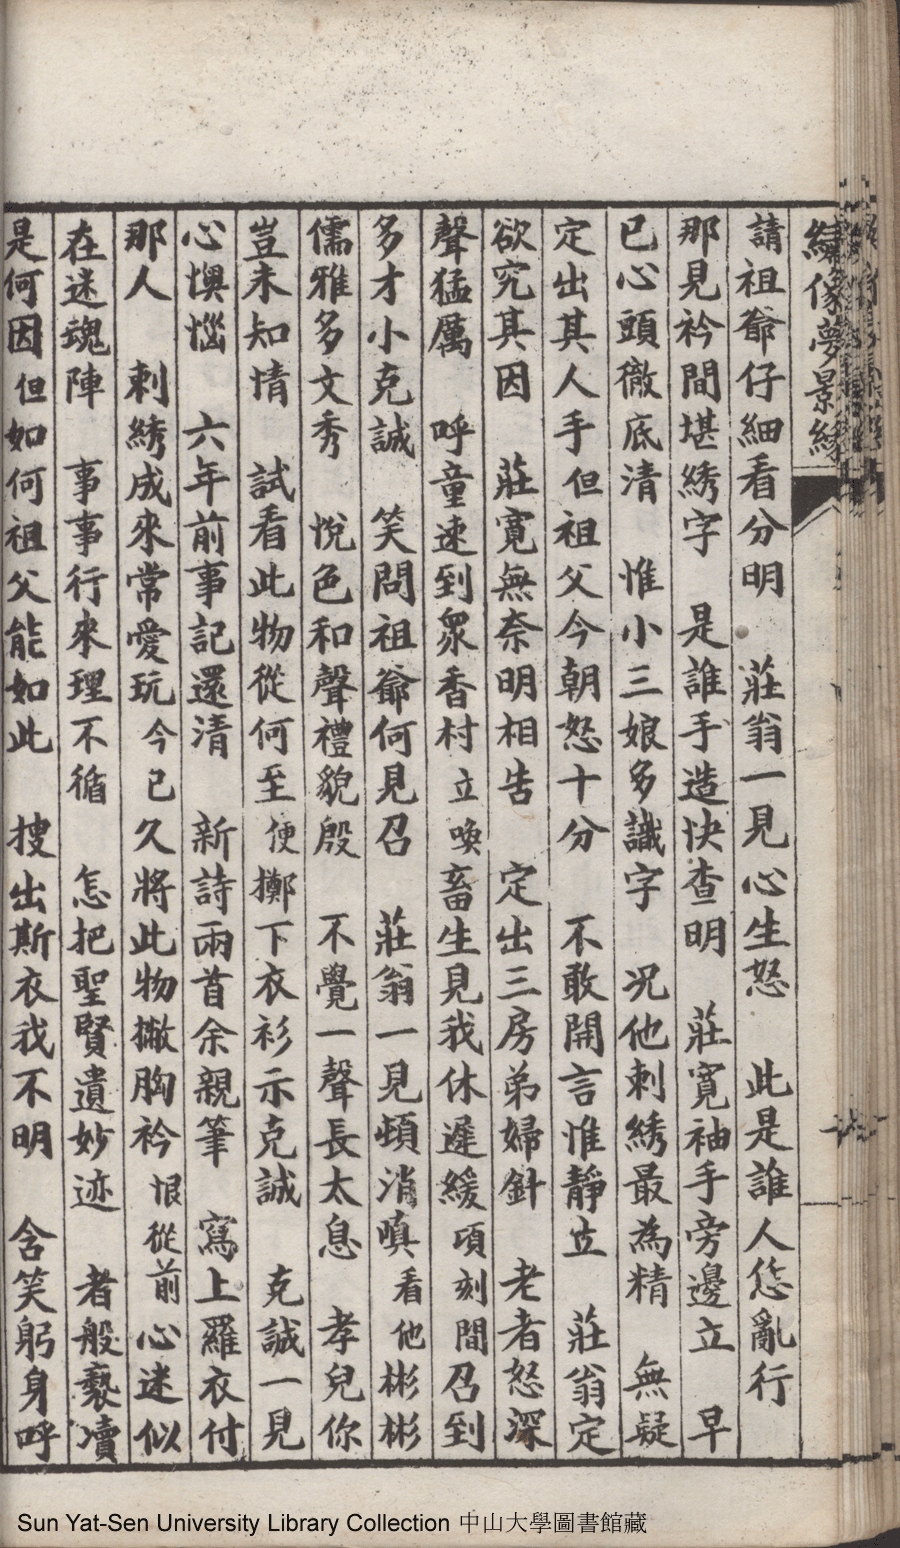 繡像夢景緣
請祖爺仔細看分明　莊翁一見心生怒　此是誰人恁亂行
那見衿間堪綉字　是誰手造快查明　莊寬袖手旁邊立　早
已心頭徹底清　惟小三娘多識字　况他刺綉最為精　無疑
定出其人手但祖父今朝怒十分　不敢開言惟靜立　莊翁定
欲究其因　莊寬無奈明相告　定出三房弟婦針　老者怒深
聲猛厲　呼童速到眾香村立喚畜生見我休遲緩頃刻間召到
多才小克誠　笑問祖爺何見召　莊翁一見頓消嗔看他彬彬
儒雅多文秀　悅色和聲禮貌殷　不覺一聲長太息　孝兒你
豈未知情　試看此物從何至便擲下衣衫示克誠　克誠一見
心懊惱　六年前事記還清　新詩兩首余親筆　寫上羅衣付
那人　刺綉成來常愛玩今已久將此物撇胸衿恨從前心迷似
在迷魂陣　事事行來理不循　怎把聖賢遺妙迹　者般褻瀆
是何因但如何祖父能如此　搜出斯衣我不明　含笑躬身呼
Sun Yat-Sen University Library Collection 中山大學圖書館藏